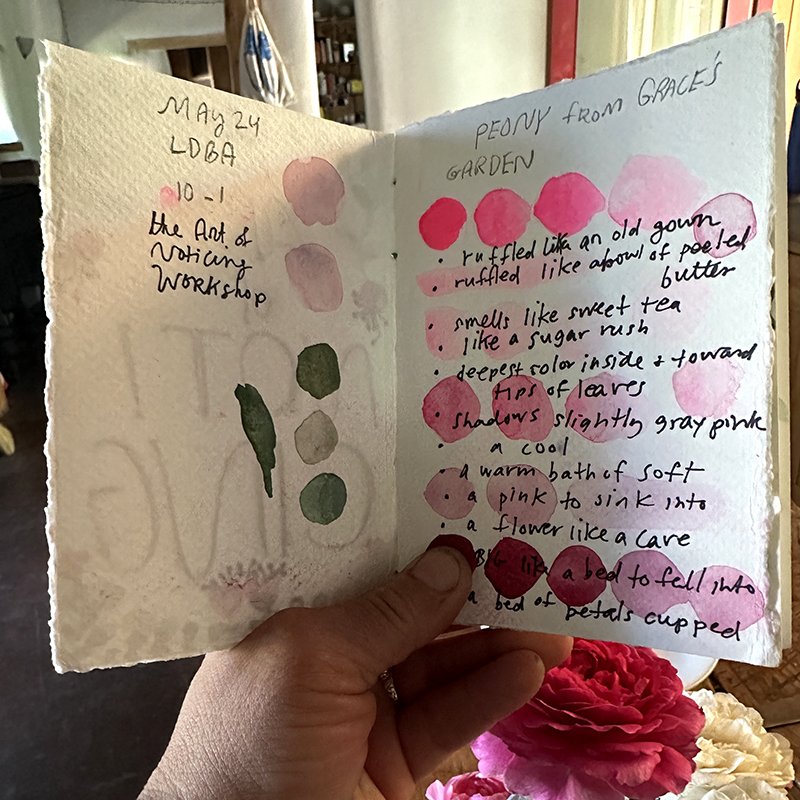 MAY 24
LDBA
10 - 1
the Art of
Noticing
Workshop
PEONY from GRACE'S
GARDEN
• ruffled like an old gown
• ruffled like a bowl of peeled
butter
• smells like sweet tea
• like a sugar rush
• deepest color inside + toward
tips of leaves
• shadows slightly gray pink
• a cool
• a warm bath of soft
• a pink to sink into
• a flower like a cave
BIG like a bed to fall into
• a bed of petals cupped